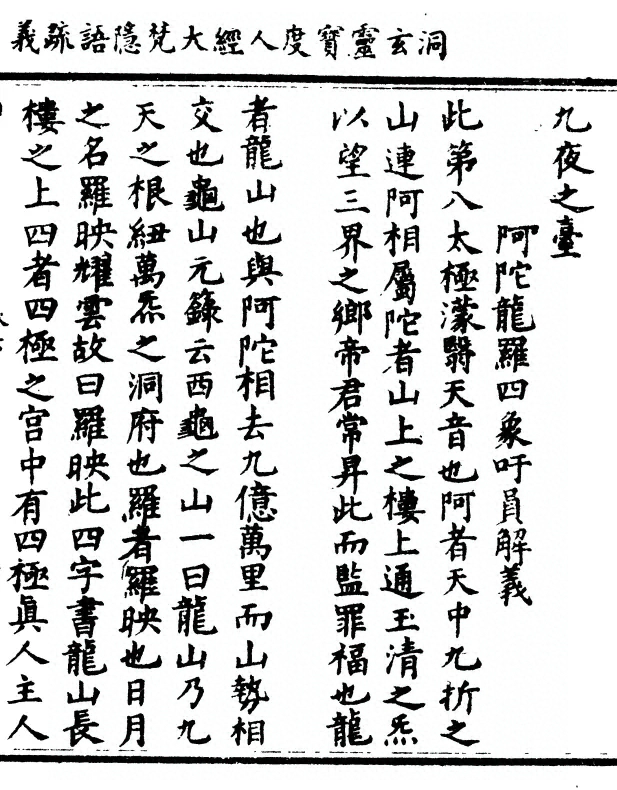 洞玄靈寶度人經大梵隱語疏義
九夜之臺
阿陀龍羅四象吁員解義
此第八太極濛翳天音也阿者天中九折之
山連阿相屬陀者山上之樓上通玉清之炁
以望三界之鄉帝君常昇此而監罪福也龍
者龍山也與阿陀相去九億萬里而山勢相
交也龜山元籙云西龜之山一曰龍山乃九
天之根紐萬炁之洞府也羅者羅映也日月
之名羅映耀雲故曰羅映此四字書龍山長
樓之上四者四極之宮中有四極真人主人